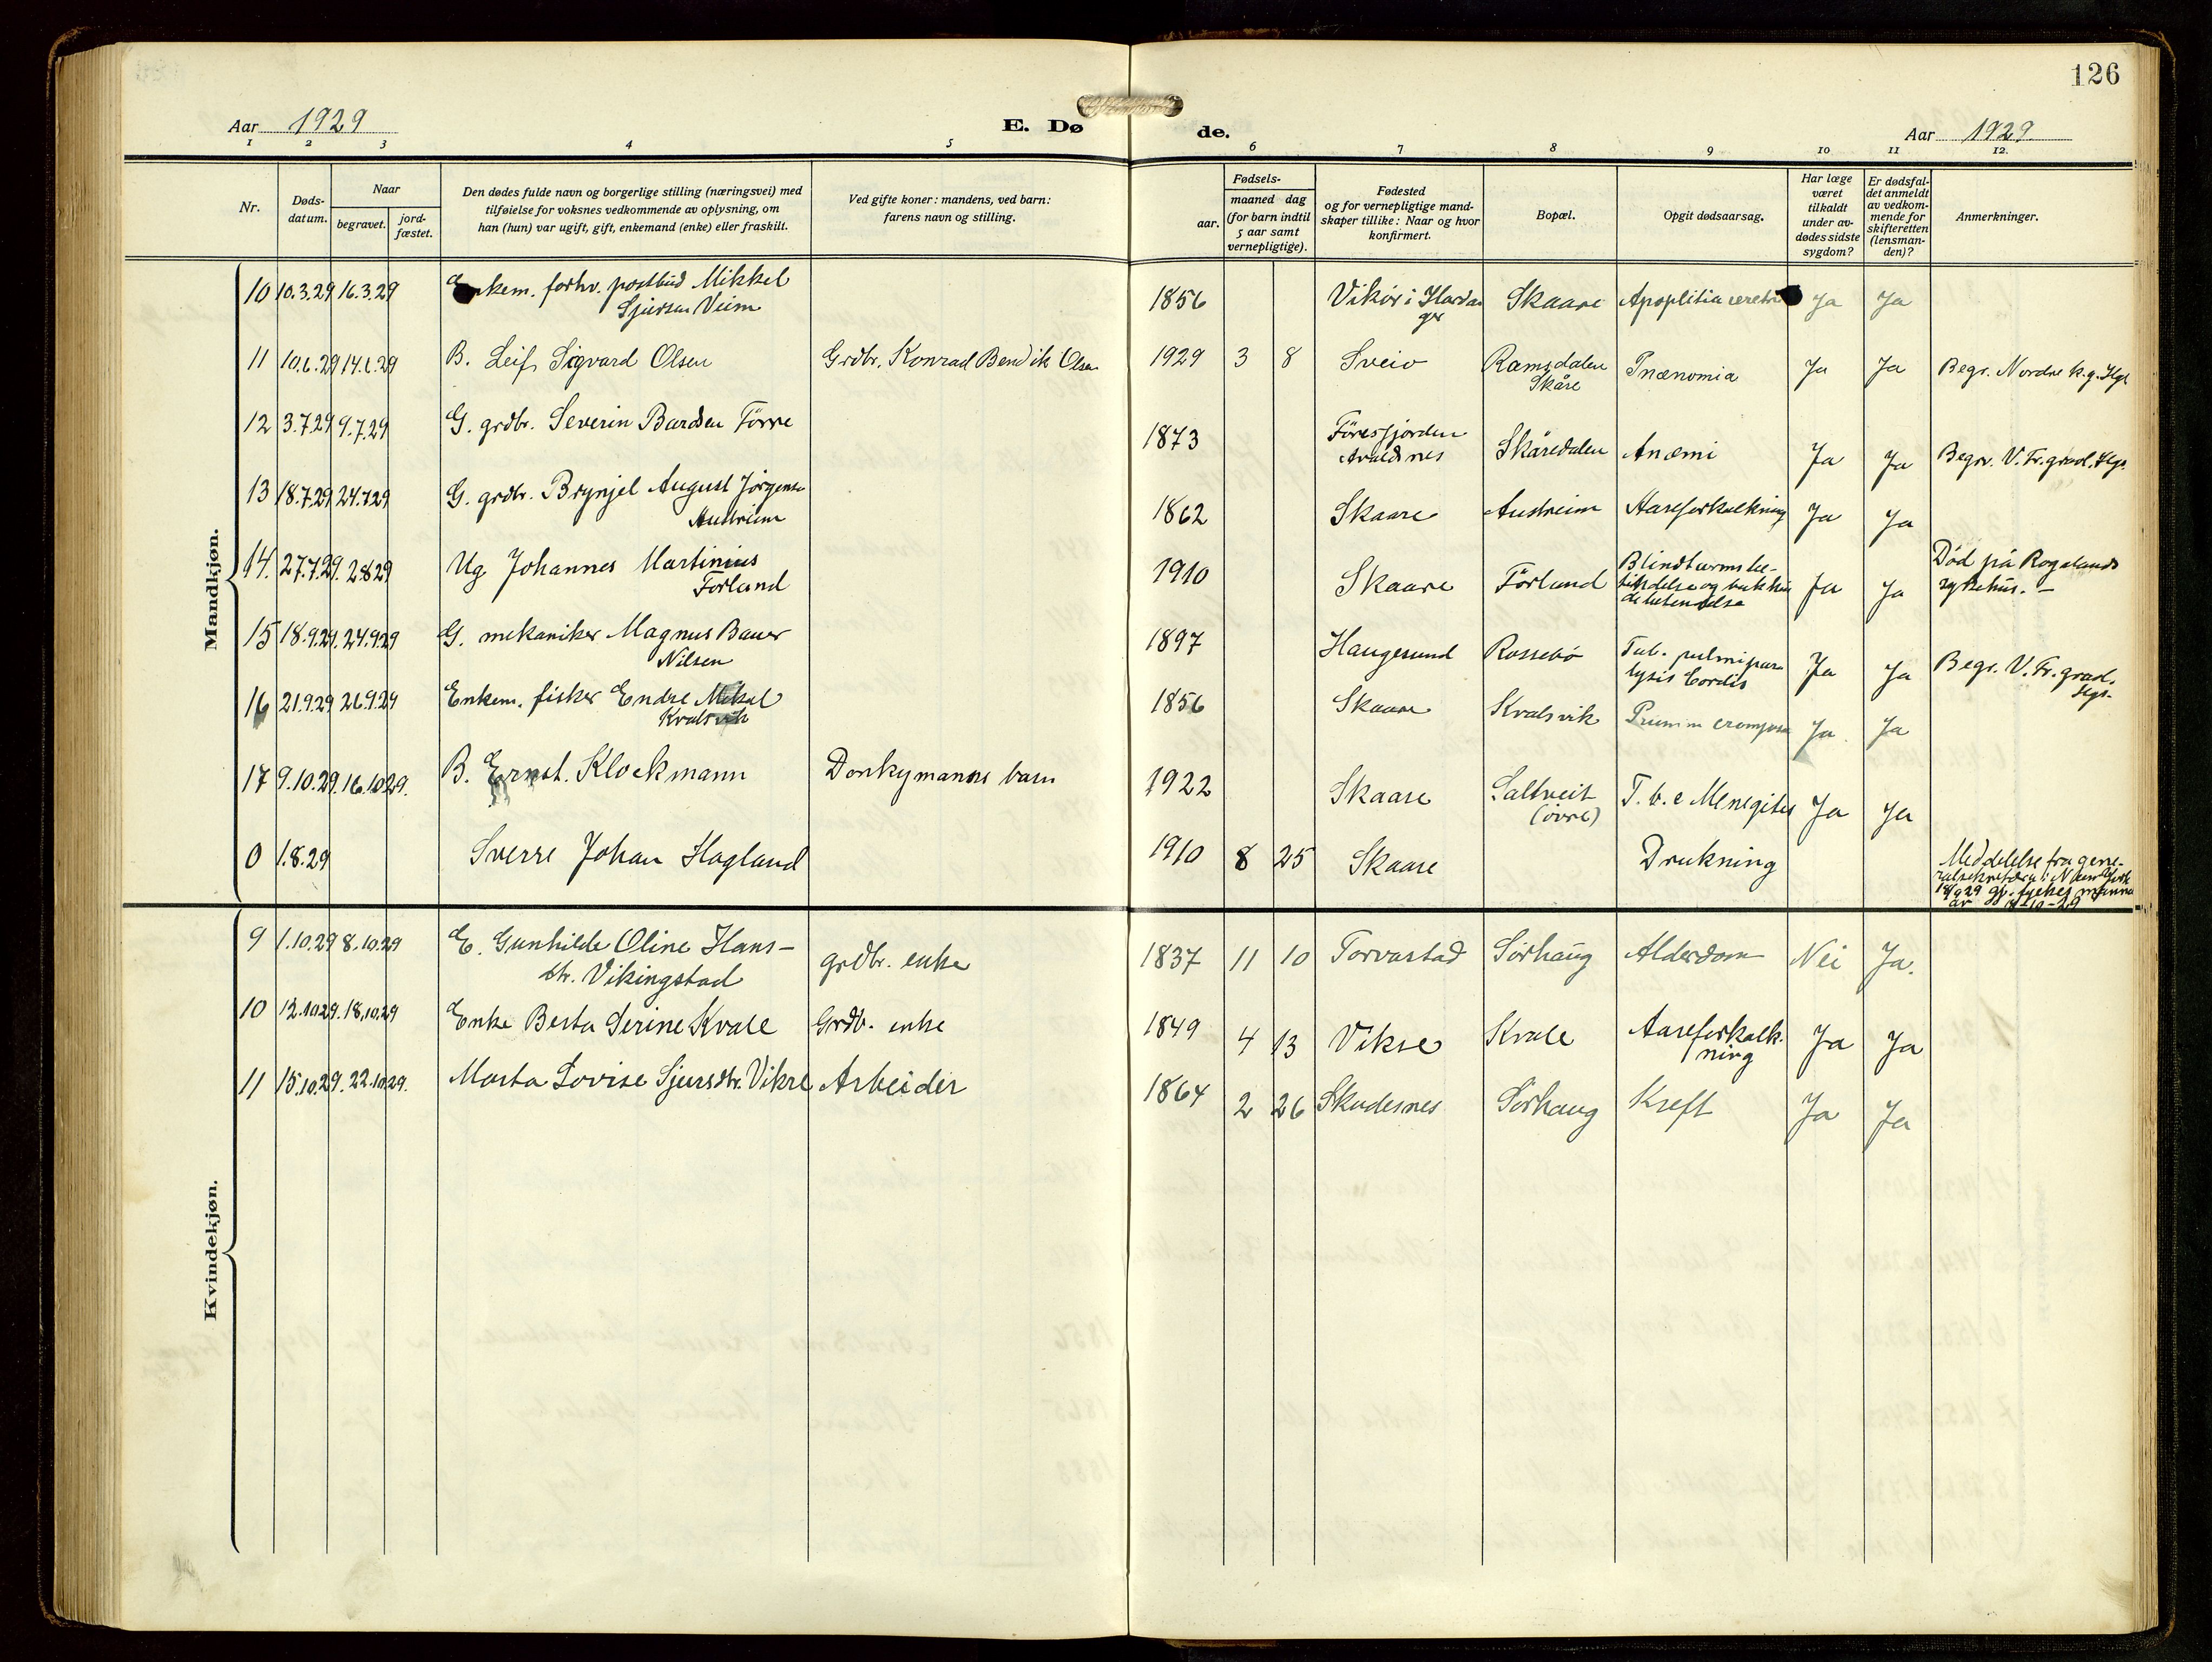 126
Aar 1929
E. Dø
de.
Aar 1929.
1 2 3 4 5 6 7 8 9 10 11 12.
Nr.
Døds-
datum.
Naar
begravet.
jord-
fæstet.
Den dødes fulde navn og borgerlige stilling (næringsvei) med
tilføielse for voksnes vedkommende av oplysning, om
han (hun) var ugift, gift, enkemand (enke) eller fraskilt.
Ved gifte koner: mandens, ved barn:
farens navn og stilling.
Fødsels-
aar.
maaned dag
(for barn indtil
5 aar samt
vernepligtige).
Fødested
og for vernepligtige mand-
skaper tillike: Naar og hvor
konfirmert.
Bopæl.
Opgit dødsaarsag.
Har læge
været
tilkaldt
under av-
dødes sidste
sygdom?
Er dødsfal-
det anmeldt
av vedkom-
mende for
skifteretten
(lensman-
den)?
Anmerkninger.
Mandkjøn.
10 10.3.29 16.3.29 Enkem. forhv. postbud Mikkel
Sjursen Veim
1856 Vikör i Hardan
ger
Skaare Ja Ja
11 10.6.29 14.6.29 B. Leif Sigvard Olsen Grdbr. Konrad Bendik Olsen 1929 3 8 Sveio Ramsdalen
Skåre
Pnænomia Ja Ja Begr. Nordre k.g. Hgs
12 3.7.29 9.7.29 G. grdbr. Severin Bardsen Förre 1873 Föresfjorden
Avaldsnes
Skåredalen Anæmi Ja Ja Begr. V. Fr. grad. Hgs.
13 18.7.29 24.7.29 G. grdbr. Brynjel August Jörgensen
Austreim
1862 Skaare Austreim Aareforkalkning Ja Ja
14. 27.7.29. 2.8.29 Ug Johannes Martinius
Förland
1910 Skaare Förland Blindtarmsbe-
tendelse og
Ja Ja Död på Rogalands
sykehus. –
15 18.9.29. 24.9.29 G. mekaniker Magnus Bauer
Nilsen
1897 Haugesund Rossebö Tub. pulm para
lysis Cordis
Ja Ja Begr. V. Fr. grad.
Hgs.
16 21.9.29 26.9.29 Enkem. fisker Endre Mikal
Kvalsvik
1856 Skaare Kvalsvik Ja Ja
17 9.10.29. 16.10.29. B. Ernst. Klockmann Donkymanns barn 1922 Skaare Saltveit
(övre)
T. b. c Menegites Ja Ja
0 1.8.29 Sverre Johan Hagland 1910 8 25 Skaare Drukning Meddelelse fra gene-
ralsekretæren i New York
Kvindekjøn.
9 1.10.29 8.10.29 E. Gunhilde Oline Hans-
dtr. Vikingstad
grdbr. enke 1837 11 10 Torvastad Sörhaug Alderdom Nei Ja.
10 12.10.29. 18.10.29 Enke Berta Serine Kvale Grdb. enke 1849 4 13 Vikse Kvale Aareforkalk-
ning
Ja Ja
11 15.10.29. 22.10.29. Marta Lovise Sjursdtr. Vikre Arbeider 1864 2 26 Skudesnes Sörhaug Kreft Ja Ja